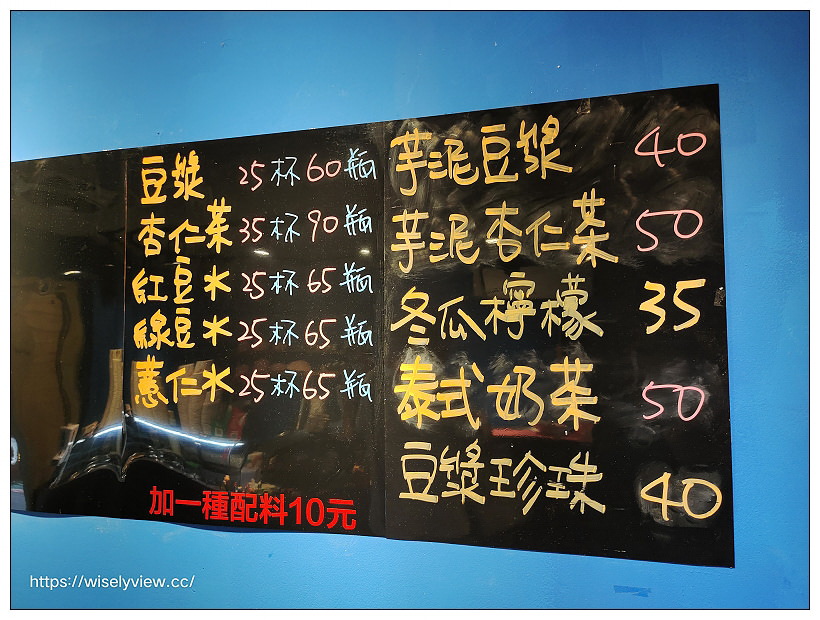 豆漿 25杯 60瓶
杏仁茶 35杯 90瓶
紅豆水 25杯 65瓶
綠豆水 25杯 65瓶
薏仁水 25杯 65瓶
加一種配料10元
芋泥豆漿 40
芋泥杏仁茶 50
冬瓜檸檬 35
泰式奶茶 50
豆漿珍珠 40
https://wiselyview.cc/